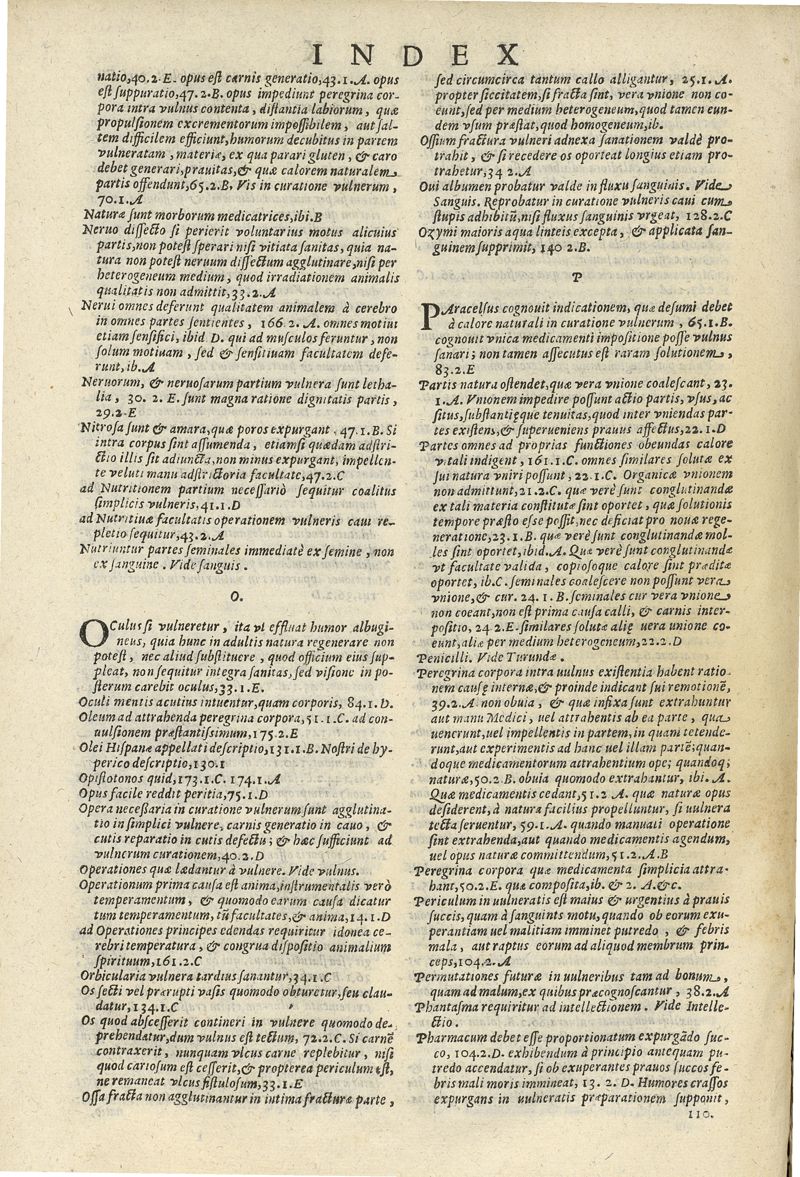 INDEX
natio,40.2.E. opus est carnis generatio,43.1.A. opus
est suppuratio,47.2.B. opus impediunt peregrina cor-
pora intra vulnus contenta, distantia labiorum, quæ
propulsionem excrementorum impossibilem, aut sal-
tem difficilem efficiunt,humorum decubitus in partem
vulneratam, materiæ, ex qua parari gluten, & caro
debet generari,prauitas,& quæ calorem naturalem
partis offendunt,65.2.B. Vis in curatione vulnerum,
70.1.A
Naturæ sunt morborum medicatrices,ibi.B
Neruo dissecto si perierit voluntarius motus alicuius
partis,non potest sperari nisi vitiata sanitas, quia na-
tura non potest neruum dissectum agglutinare,nisi per
heterogeneum medium, quod irradiationem animalis
qualitatis non admittit,33.2.A
Nerui omnes deferunt qualitatem animalem à cerebro
in omnes partes sentientes, 166 2. A. omnes motiui
etiam sensifici, ibid D. qui ad musculos feruntur, non
solum motiuam, sed & sensitiuam facultatem defe-
runt,ib.A
Neruorum, & neruosarum partium vulnera sunt letha-
lia, 30. 2. E. sunt magna ratione dignitatis partis,
29.2.E
Nitrosa sunt & amara,quæ poros expurgant.47.1.B. Si
intra corpus sint assumenda, etiamsi quædam adstri-
ctio illis sit adiuncta,non minus expurgant, impellen-
te veluti manu adstrictoria facultate,47.2.C
ad Nutritionem partium necessariò sequitur coalitus
simplicis vulneris,41.1.D
ad Nutritiuæ facultatis operationem vulneris caui re-
pletio sequitur,43.2.A
Nutriuntur partes seminales immediatè ex semine, non
ex sanguine. Vide sanguis.
O.
OCulus si vulneretur, ita vt effluat humor albugi-
neus, quia hunc in adultis natura regenerare non
potest, nec aliud substituere, quod officium eius sup-
pleat, non sequitur integra sanitas,sed visione in po-
sterum carebit oculus,33.1.E.
Oculi mentis acutius intuentur,quam corporis, 84.1.D.
Oleum ad attrahenda peregrina corpora,51.1.C. ad con-
uulsionem præstantissimum,175.2.E
Olei Hispanæ appellati descriptio,131.1.B. Nostri de hy-
perico descriptio,130.1
Opistotonos quid,173.1.C. 174.1.A
Opus facile reddit peritia,75.1.D
Opera necessaria in curatione vulnerum sunt agglutina-
tio in simplici vulnere, carnis generatio in cauo, &
cutis reparatio in cutis defectu; & hæc sufficiunt ad
vulnerum curationem,40.2.D
Operationes quæ lædantur à vulnere. Vide vulnus.
Operationum prima causa est anima,instrumentalis verò
temperamentum, & quomodo earum causa dicatur
tum temperamentum, tũ facultates,& anima,14.1.D
ad Operationes principes edendas requiritur idonea ce-
rebri temperatura, & congrua dispositio animalium
spirituum,161.2.C
Orbicularia vulnera tardius sanantur,34.1.C
Os secti vel prærupti vasis quomodo obturetur,seu clau-
datur,134.1.C
Os quod abscesserit contineri in vulnere quomodo de-
prehendatur,dum vulnus est tectum, 72.2.C. Si carnẽ
contraxerit, nunquam vlcus carne replebitur, nisi
quod cariosum est cesserit,& propterea periculum est,
ne remaneat vlcus fistulosum,33.1.E
Ossa fracta non agglutinantur in intima fracturæ parte,
sed circumcirca tantum callo alligantur, 25.1.A.
propter siccitatem,si fracta sint, vera vnione non co-
eunt,sed per medium heterogeneum,quod tamen eun-
dem vsum præstat,quod homogeneum,ib.
Ossium fractura vulneri adnexa sanationem valdè pro-
trahit, & si recedere os oporteat longius etiam pro-
trahetur,34 2.A
Oui albumen probatur valde in fluxu sanguinis. Vide
Sanguis. Reprobatur in curatione vulneris caui cum
stupis adhibitũ,nisi fluxus sanguinis vrgeat, 128.2.C
Ozymi maioris aqua linteis excepta, & applicata san-
guinem supprimit, 140 2.B.
P
PAracelsus cognouit indicationem, quæ desumi debet
à calore naturali in curatione vulnerum, 65.1.B.
cognouit vnica medicamenti impositione posse vulnus
sanari; non tamen assecutus est raram solutionem,
83.2.E
Partis natura ostendet,quæ vera vnione coalescant, 23.
1.A. Vnionem impedire possunt actio partis, vsus, ac
situs,substantięque tenuitas,quod inter vniendas par-
tes existens,& superueniens prauus affectus,22.1.D
Partes omnes ad proprias functiones obeundas calore
vitali indigent, 161.1.C. omnes similares solutæ ex
sui natura vniri possunt, 22.1.C. Organicæ vnionem
non admittunt,21.2.C. quæ verè sunt conglutinandæ
ex tali materia constitutæ sint oportet, quæ solutionis
tempore præsto esse possit,nec deficiat pro nouæ rege-
neratione,23.1.B. quæ verè sunt conglutinandæ mol-
les sint oportet,ibid.A. Quæ verè sunt conglutinandæ
vt facultate valida, copiosoque calore sint præditæ
oportet, ib.C. seminales coalescere non possunt vera
vnione,& cur. 24.1.B. seminales cur vera vnione
non coeant,non est prima causa calli, & carnis inter-
positio, 24 2.E. similares solutæ alię uera unione co-
eunt,aliæ per medium heterogeneum,22.2.D
Penicilli. Vide Turundæ.
Peregrina corpora intra uulnus existentia habent ratio-
nem causę internæ,& proinde indicant sui remotionẽ,
39.2.A. non obuia, & quæ infixa sunt extrahuntur
aut manu Medici, uel attrahentis ab ea parte, qua
uenerunt,uel impellentis in partem, in quam tetende-
runt,aut experimentis ad hanc uel illam partẽ;quan-
doque medicamentorum actrahentium ope; quandoq;
naturæ,50.2.B. obuia quomodo extrahantur, ibi. A.
Quæ medicamentis cedant,51.2.A. quæ naturæ opus
desiderent, à natura facilius propelluntur, si uulnera
tecta seruentur, 59.1.A. quando manuali operatione
sint extrahenda,aut quando medicamentis agendum,
uel opus naturæ committendum,51.2.A.B
Peregrina corpora quæ medicamenta simplicia attra-
hant,50.2.E. quæ composita,ib.& 2. A.&c.
Periculum in uulneratis est maius & urgentius à prauis
succis, quam à sanguinis motu,quando ob eorum exu-
perantiam uel malitiam imminet putredo, & febris
mala, aut raptus eorum ad aliquod membrum prin-
ceps,104.2.A
Permutationes futuræ in uulneribus tam ad bonum,
quam ad malum,ex quibus præcognoscantur, 38.2.A
Phantasma requiritur ad intellectionem. Vide Intelle-
ctio.
Pharmacum debet esse proportionatum expurgãdo suc-
co, 104.2.D. exhibendum à principio antequam pu-
tredo accendatur, si ob exuperantes prauos succos fe-
bris mali moris immineat, 13. 2. D. Humores crassos
expurgans in uulneratis præparationem supponit,
110.